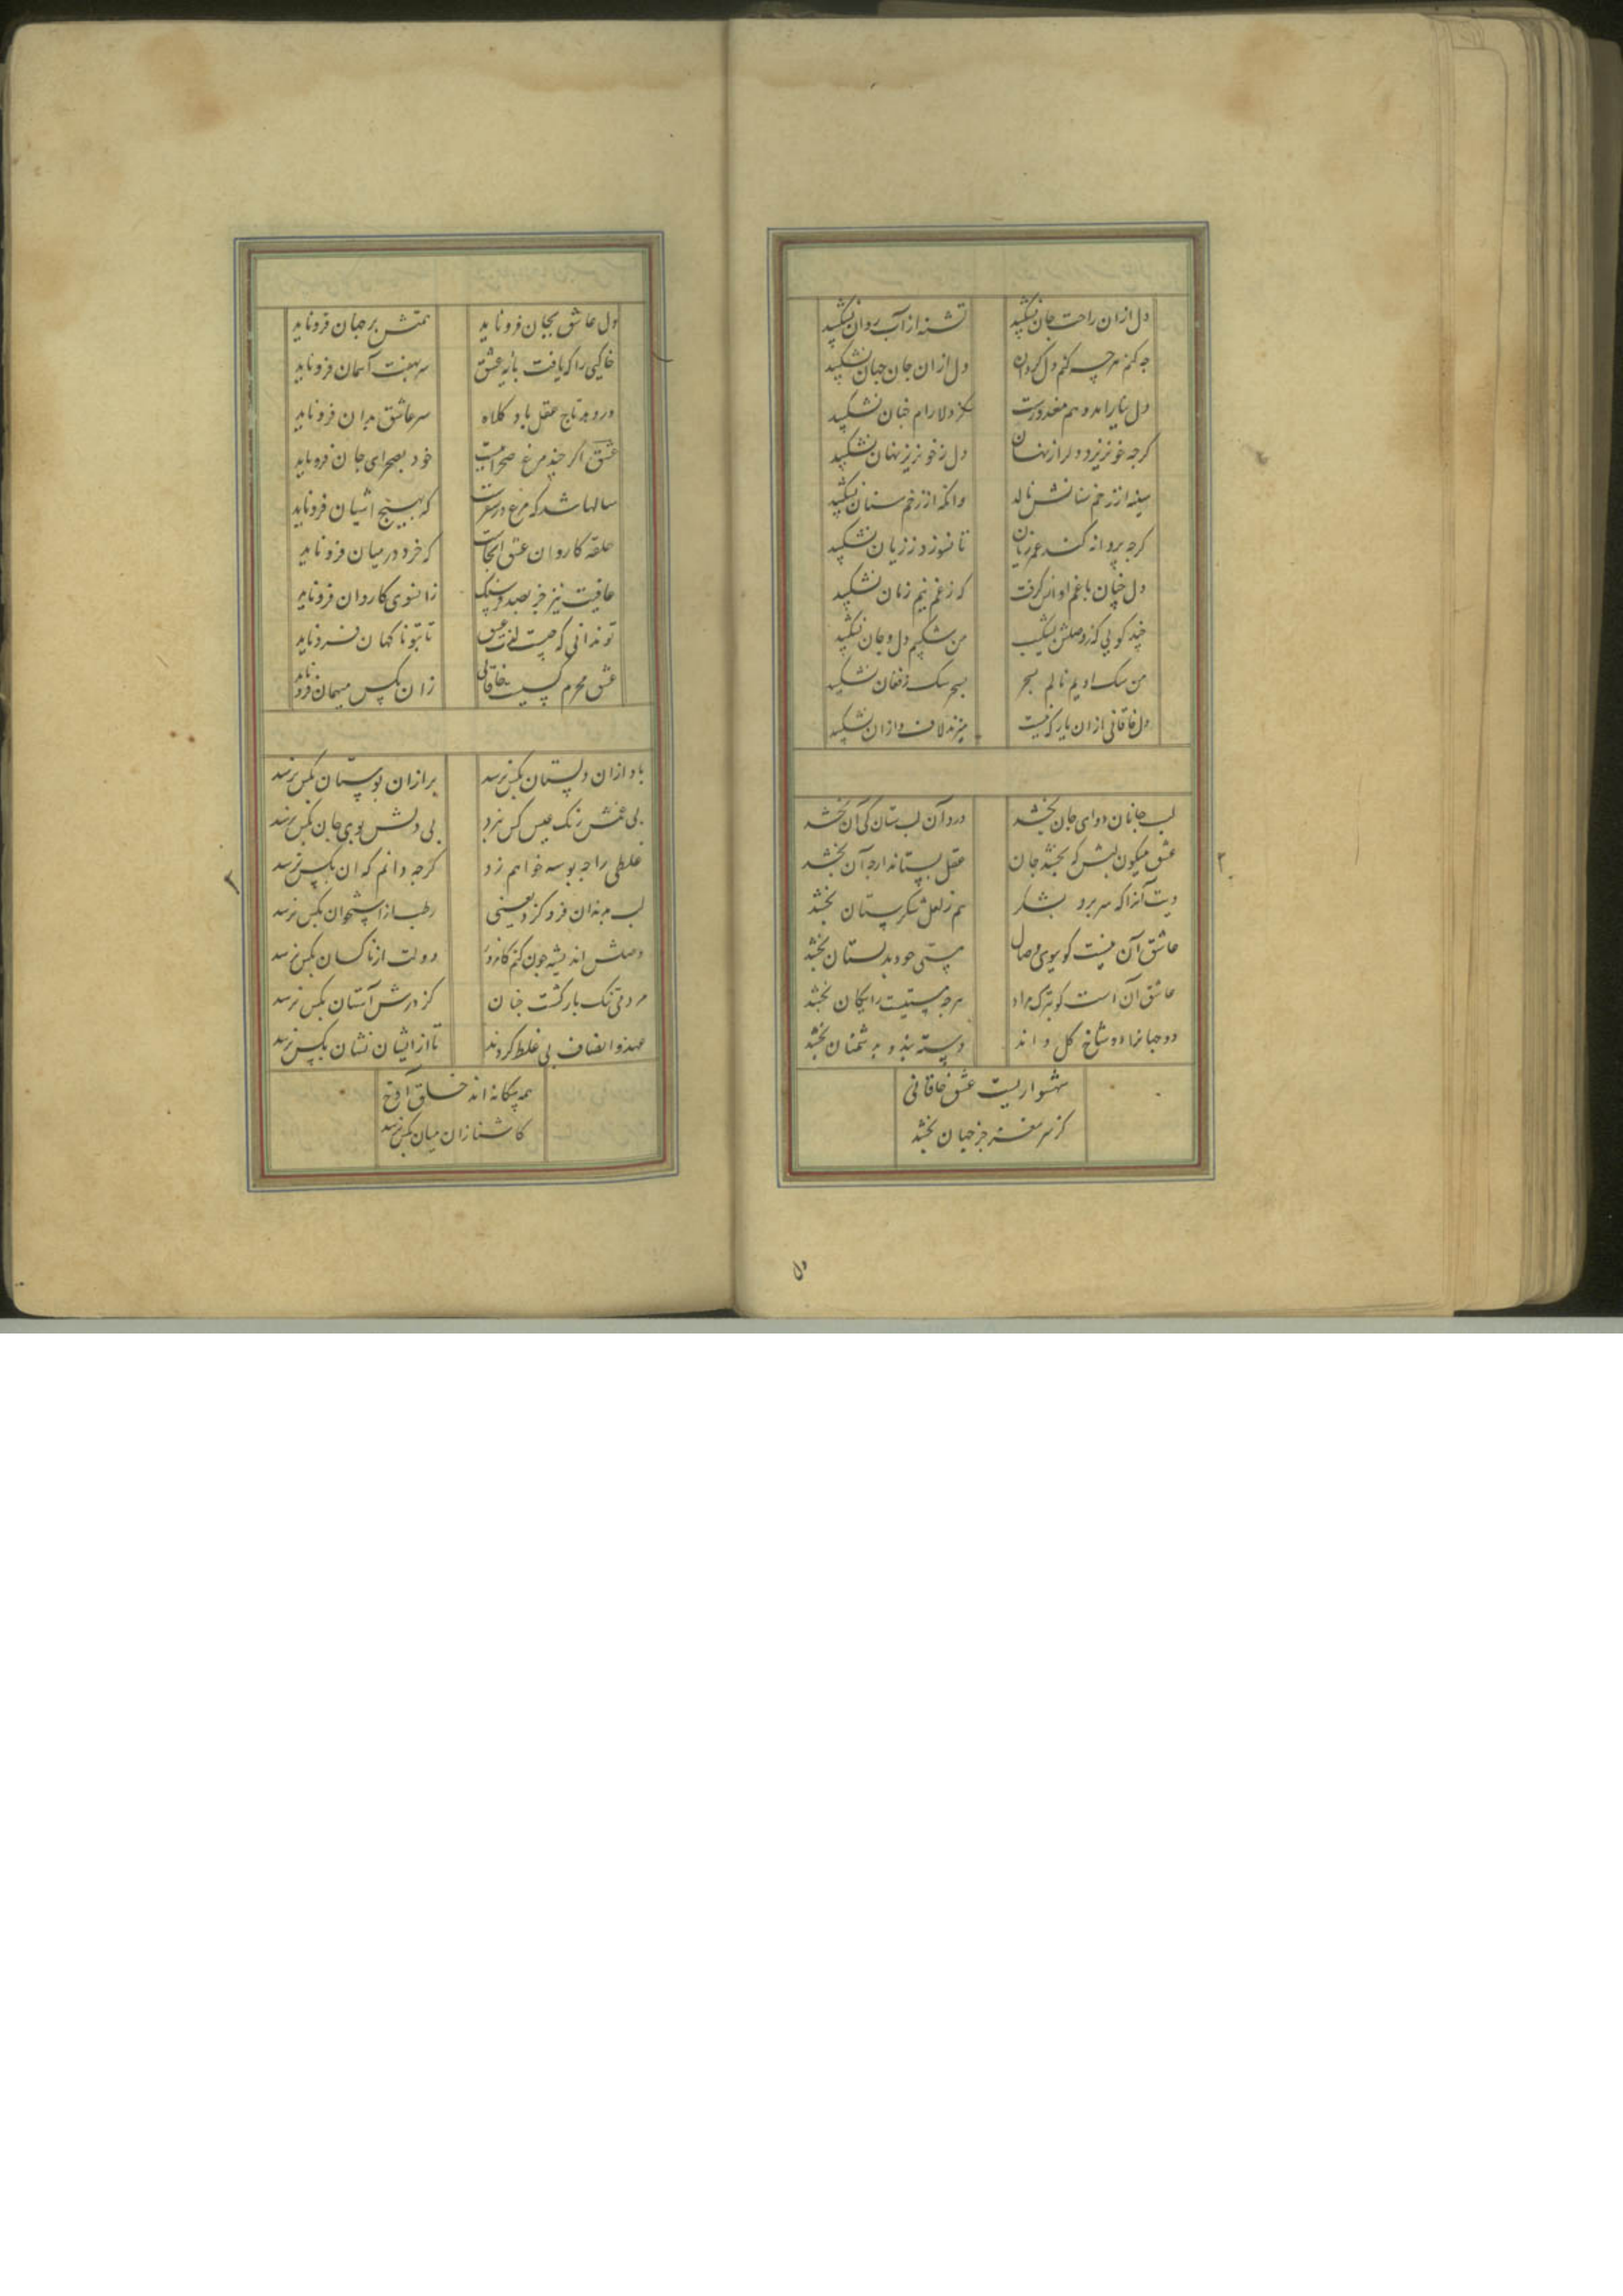 دل ازان راحت جان نشکیبد تشنه از آب روان نشکیبد
چه کنم هرچه کنم دل کردن دل ازان جان جهان نشکیبد
دل بیاراید و هم معذورست کز دلارام چنان نشکیبد
کرچه خونریزد دلرا ز نهان دل ز خونریز نهان نشکیبد
سینه از زخم سنانش نالد وانکه از زخم سنان نشکیبد
کرچه پروانه کند عمر زیان تا نسوزد ز زیان نشکیبد
دل چنان با غم او انس کرفت که ز غم نیم زمان نشکیبد
چند کویی که ز وصلش بشکیب من شکیبم دل و جان نشکیبد
من سک اویم نالم بسحر بسحر سک ز فغان نشکیبد
دل خاقانی ازان یار که نیست میزند لاف و ازان نشکیبد
لب جانان دوای جان بخشد درد آن لب ستان کی آن بخشد
عشق میکون لبش که بخشد جان عقل بستاند ارچه آن بخشد
دیت آنرا که سر برد بشکر هم ز لعل شکرستان بخشد
عاشق آن نیست کو ببوی وصال هستی خود بدلستان بخشد
عاشق آن است کو بترک مراد هرچه هستیست رایکان بخشد
دو جهانرا دو شاخ کل داند دسته بندد و بدشمنان بخشد
شهسواریست عشق خاقانی
کز سر مغز جز جهان بخشد
دل
دل عاشق بجان فرو ناید همتش بر جهان فرو ناید
خاکیی را که یافت بانه عشق سر بهفت آسمان فرو ناید
ورو بد تاج عقل باد کلاه سر عاشق بدان فرو ناید
عشق اکر چند مرغ صحراییست خود بصحرای جان فرو ناید
سالها شد که مرغ در سفرست که بهیچ اشیان فرو ناید
حلقه کاروان عشق انجاست که خرد در میان فرو ناید
عافیت نیز جز بصد فرسنک زانسوی کاروان فرو ناید
تو ندانی که چیست لذت عشق تا بتو ناکهان فرو ناید
عشق محرم کسیست خاقانی زان بکس میهمان فرو ناید
باد ازان دلستان بکس نرسد بر ازان بوستان بکس نرسد
بی غمش رنک عیش کس نبرد بی دلش بوی جان بکس نرسد
غلطی را چه بوسه خواهم زد کرچه دانم که آن بکس نرسد
لب بدندان فرو کزد یعنی رطب از استخوان بکس نرسد
وصلش اندیشه چون کنم کامروز دولت از ناکسان بکس نرسد
مردمی تنک بار کشت چنان کز درش آستان بکس نرسد
عهد و انصاف پی غلط کردند تا از ایشان نشان بکس نرسد
همه بیکانه اند خلق آوخ
کاشنا زان میان بکس نرسد